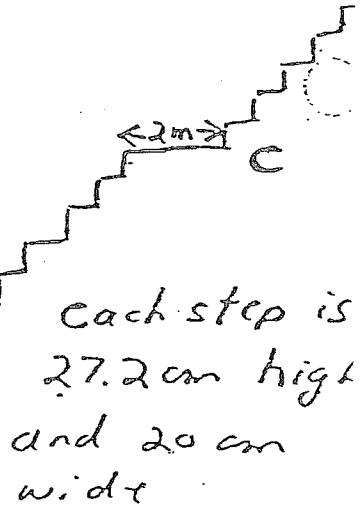 2m
C
each step is
27.2 cm high
and 20 cm
wide